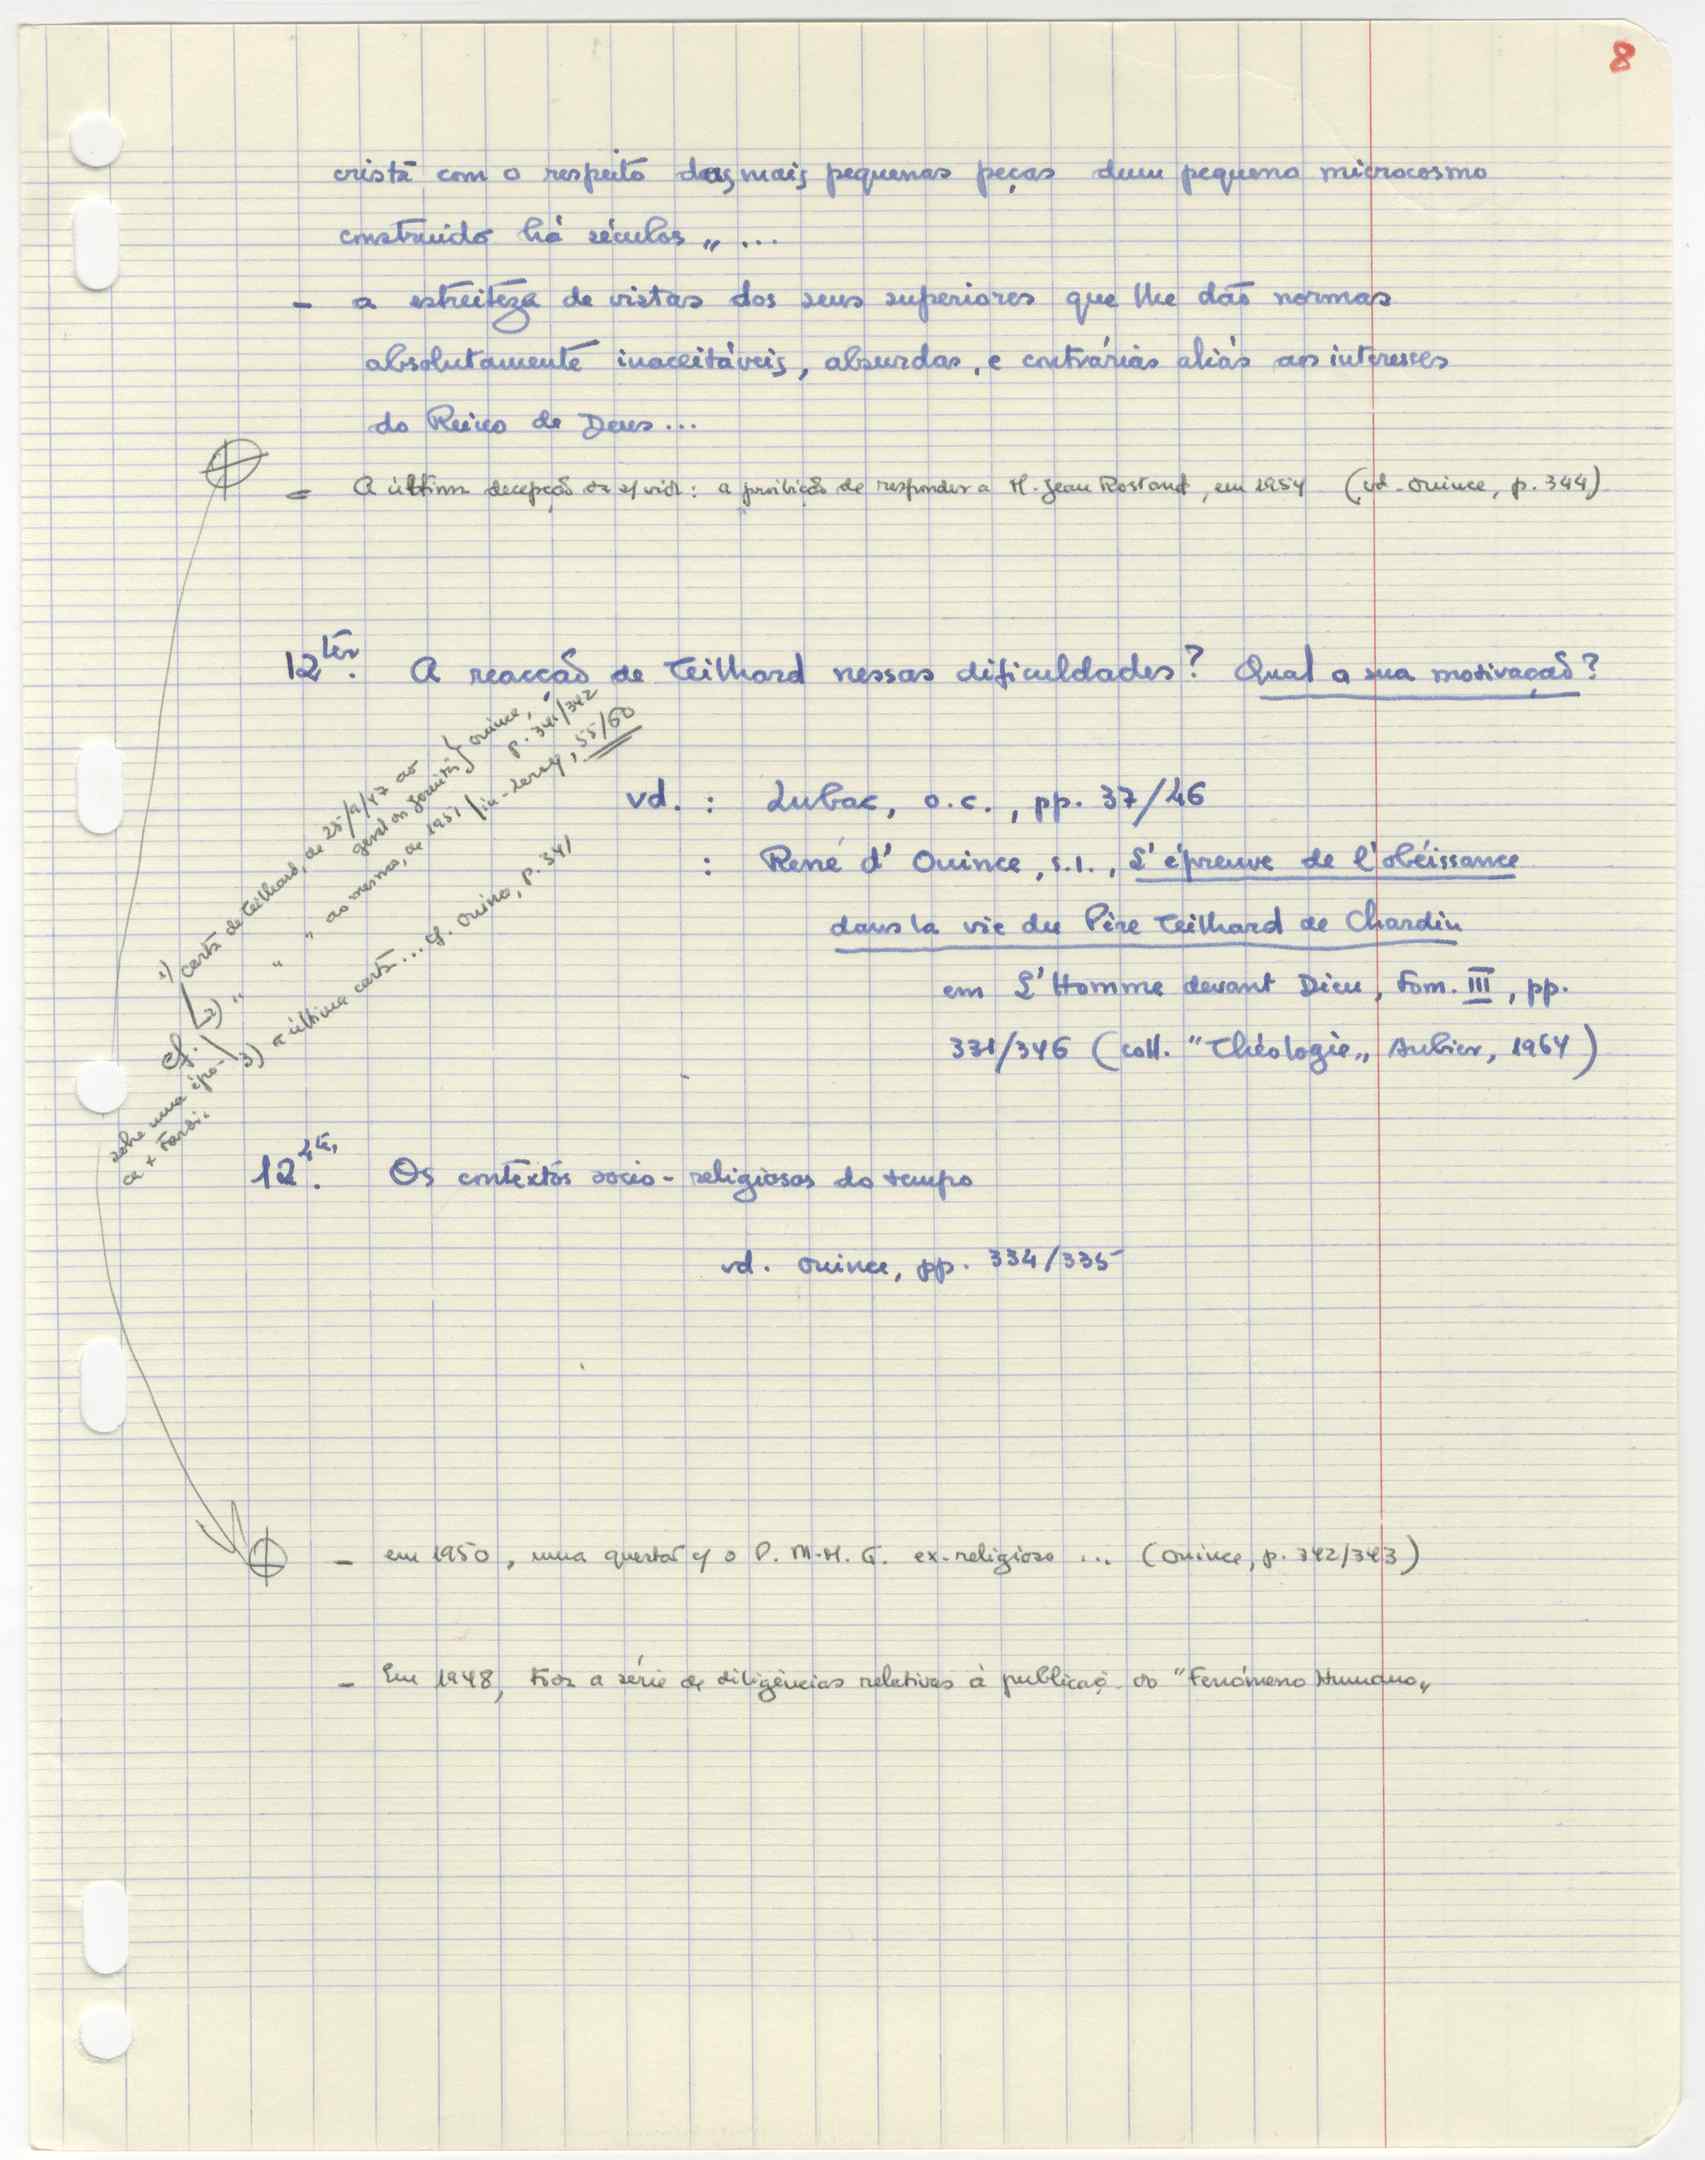 8
cristã com o respeito das mais pequenas peças dum pequeno microcosmo
construido há séculos „ ...
- a estreiteza de vistas dos seus superiores que lhe dão normas
absolutamente inaceitáveis, absurdas, e contrárias aliás aos interesses
do Reino de Deus...
- A última decepção da s/ vida: a proibição de responder a M. Jean Rostand, em 1954 (vd. Ouince, p. 344)
12ter. A reacção de Teilhard nessas dificuldades? Qual a sua motivação?
vd. : Lubac, o.c., pp. 37/46
: René d' Ouince, s.i., L'épreuve de l'obéissance
dans la vie du Père Teilhard de Chardin
em L'Homme devant Dieu, Tom. III, pp.
331/346 (coll. "Théologie„ Aubier, 1964)
cf. 1) carta de Teilhard, de 25/9/47 ao
geral dos Jesuitas } Ouince,
p. 341/342
2) " " " ao mesmo, de 1951 (in-Leroy, 55/60
3) a última carta... cf. Ouince, p. 341
sobre uma épo-
ca + tardi.
12 Os contextos socio-religiosos do tempo
vd. Ouince, pp. 334/335
- em 1950, uma questão c/ o P. M-M. G. ex-religioso ... (Ouince, p. 342/343)
- Em 1948, toda a série de diligências relativas à publicaç. do "Fenómeno Humano„